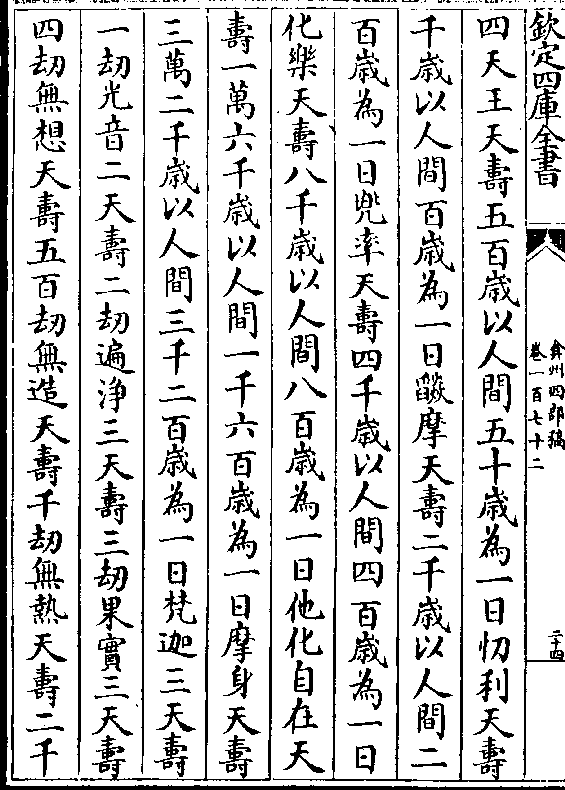 欽定四庫全書
弇州四部稿
卷一百七十二
二十四
四天王天壽五百歳以人間五十歳為一日忉利天壽
千歳以人間百歳為一日燄摩天壽二千歳以人間二
百歳為一日兜率天壽四千歳以人間四百歳為一日
化樂天壽八千歳以人間八百歳為一日他化自在天
壽一萬六千歳以人間一千六百歳為一日摩身天壽
三萬二千歳以人間三千二百歳為一日梵迦三天壽
一刼光音二天壽二刼遍淨三天壽三刼果實三天壽
四刼無想天壽五百刼無造天壽千刼無熱天壽二千